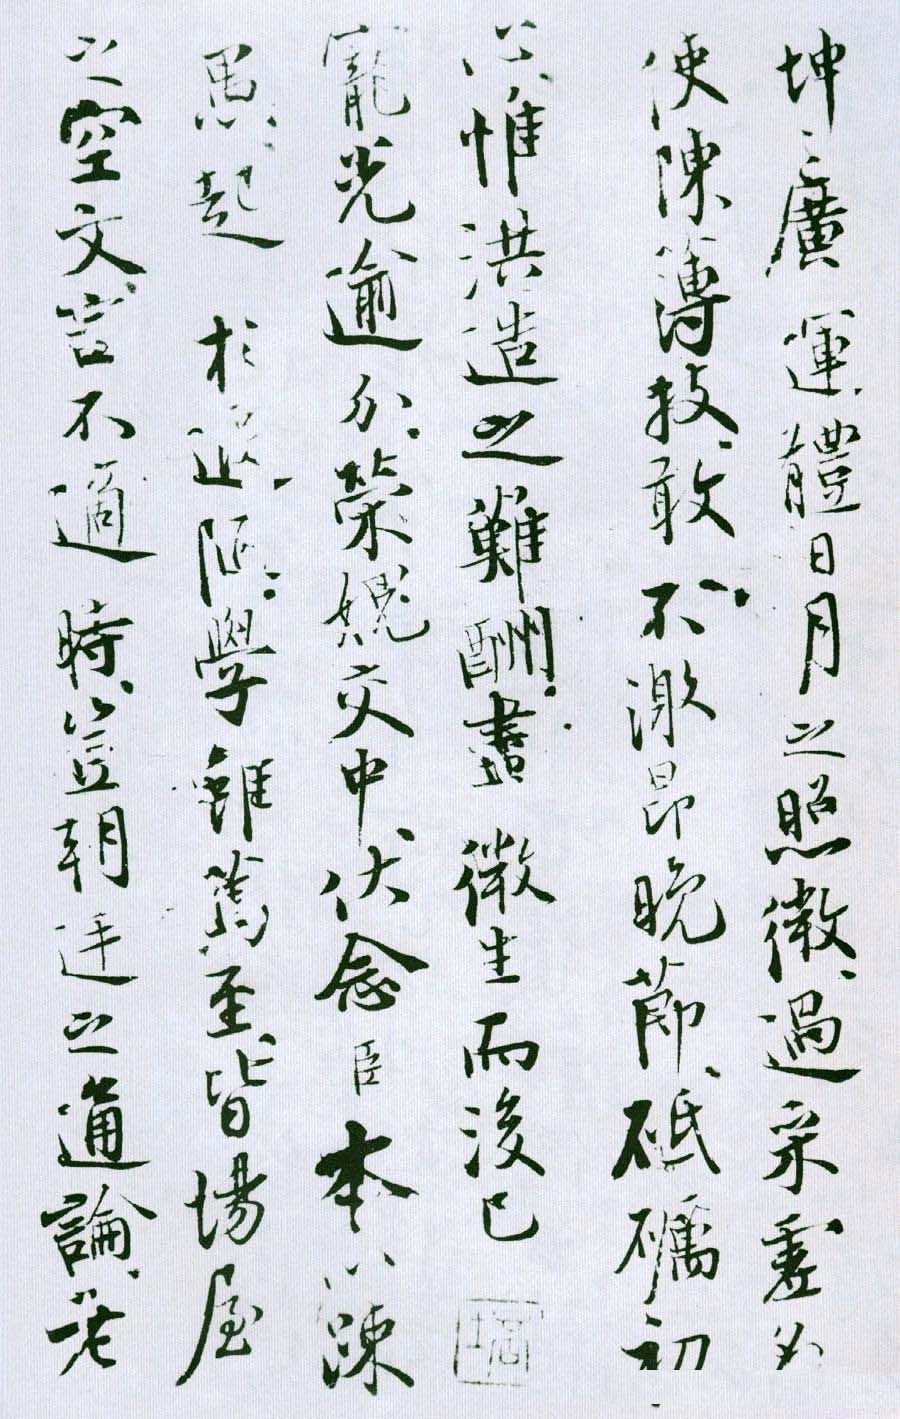 坤之廣運體日月之照微過采虛名
使陳薄技敢不激昂晚節砥礪初
心惟洪造之難酬盡微生而後已
寵光逾分榮愧交中伏念臣本以疎
愚起於遐陋學雖篤至皆場屋
之空文言不適時豈朝廷之通論老